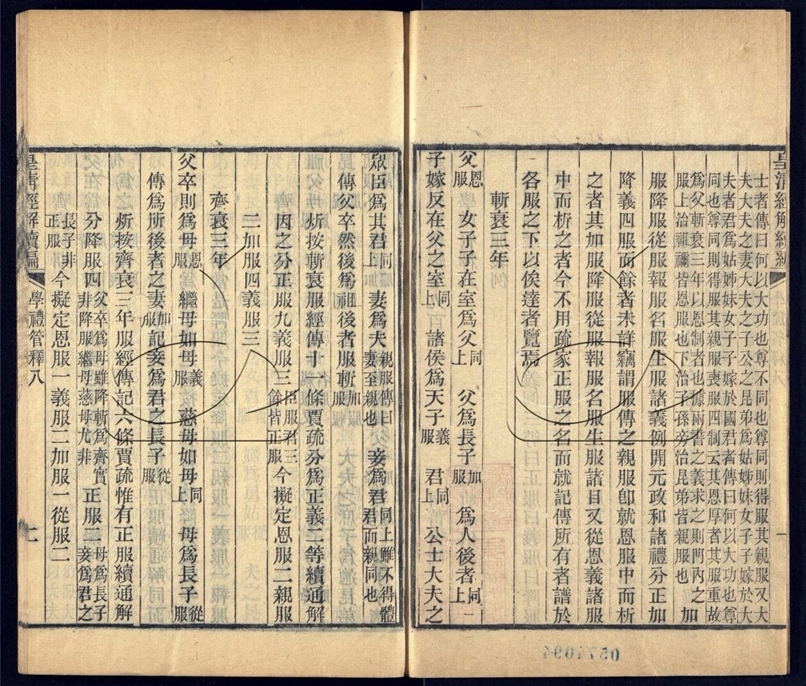 士者傳曰何以大功也尊不同也尊同則得服其親服又大
夫大夫之妻大夫之子公之昆弟為姑姊妹女子子嫁於大
夫者君為姑姊妹女子子嫁於國君者傳曰何以大功也尊
同也尊同則得服其親服喪服四制云其恩厚者其服重故
為父斬衰三年以恩制者也據兩者之義求之則門內之加
服上治祖禰皆恩服也下治子孫旁治昆弟皆親服也
服降服從服報服名服生服諸義例開元政和諸禮分正加
降義四服而餘者未詳竊謂服傳之親服卽就恩服中而析
之者其加服降服從服報服名服生服諸目又從恩義諸服
中而析之者今不用疏家正服之名而就記傳所有者譜於
各服之下以俟達者覽焉
斬衰三年
父恩服 女子子在室為父同上 父為長子加服 為人後者同上
子嫁反在父之室同上 諸侯為天子義服 君同上 公士大夫之
眾臣為其君同上 妻為夫親服傳曰妻至親也 妾為君同上雖不得體君而親同也
傳父卒然後為祖後者服斬加服
炘按斬衰服經傳十一條賈疏分為正義二等續通解
因之分正服九義服三臣服君三餘皆正服今擬定恩服二親服
二加服四義服三
齊衰三年
父卒則為母恩服 繼母如母義服 慈母如母同上 母為長子從服
傳為所後者之妻加服 記妾為君之長子從服
炘按齊衰三年服經傳記六條賈疏惟有正服續通解
分降服四父卒為母雖降斬為齊實非降服繼母慈母尤非 正服二母為長子妾為君之
長子非正服 今擬定恩服一義服二加服一從服二
皇清經解續編
學禮管釋八
七
0574094